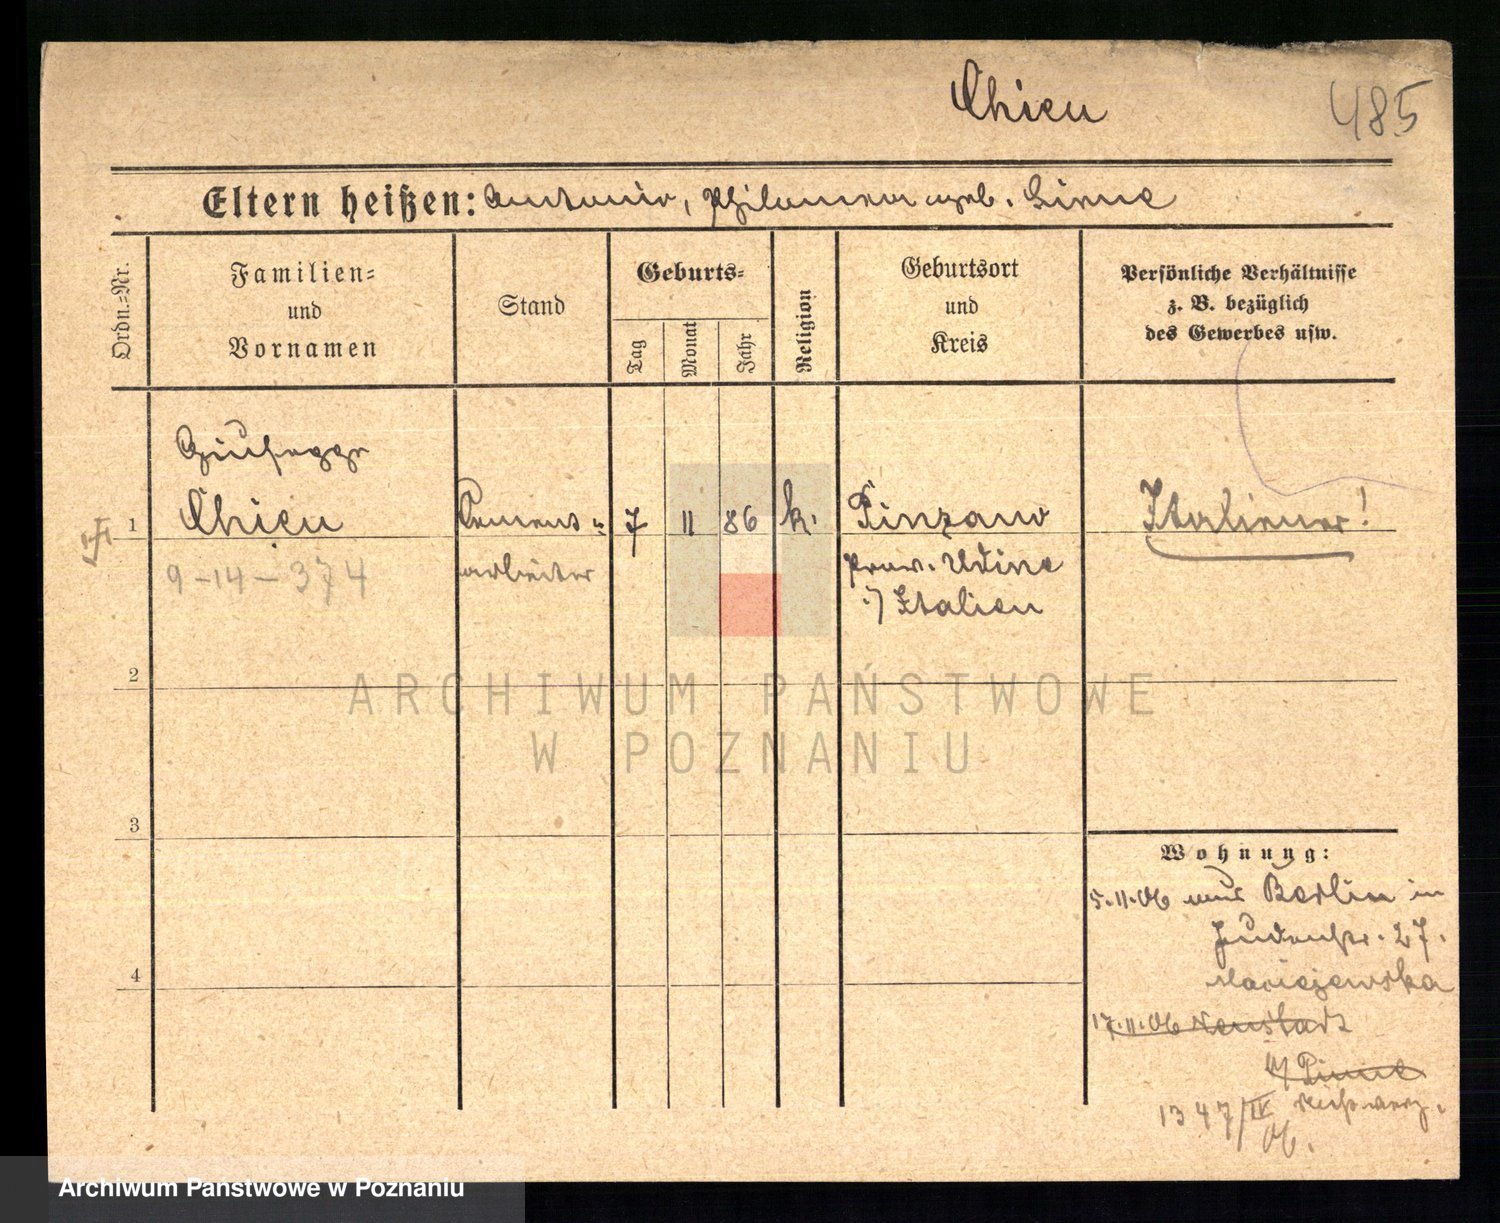 Chieu
485
Eltern heißen: Antonio, Philomena geb. Liene
Ordn.-Nr.
Familien-
und
Vornamen
Stand
Geburts-
Tag
Monat
Jahr
Religion
Geburtsort
und
Kreis
Persönliche Verhältnisse
z. B. bezüglich
des Gewerbes usw.
Giuseppe
1 Chieu Cement- 7 11 86 k. Pinzano Italiener!
9-14-374 arbeiter Prov. Udine
Italien
2
3
4
Wohnung:
5.11.06 aus Berlin in
Judenstr. 27.
Maciejewska
17.11.06 Neustadt
Pinne
1347/IX
06.
ARCHIWUM PAŃSTWOWE
W POZNANIU
Archiwum Państwowe w Poznaniu